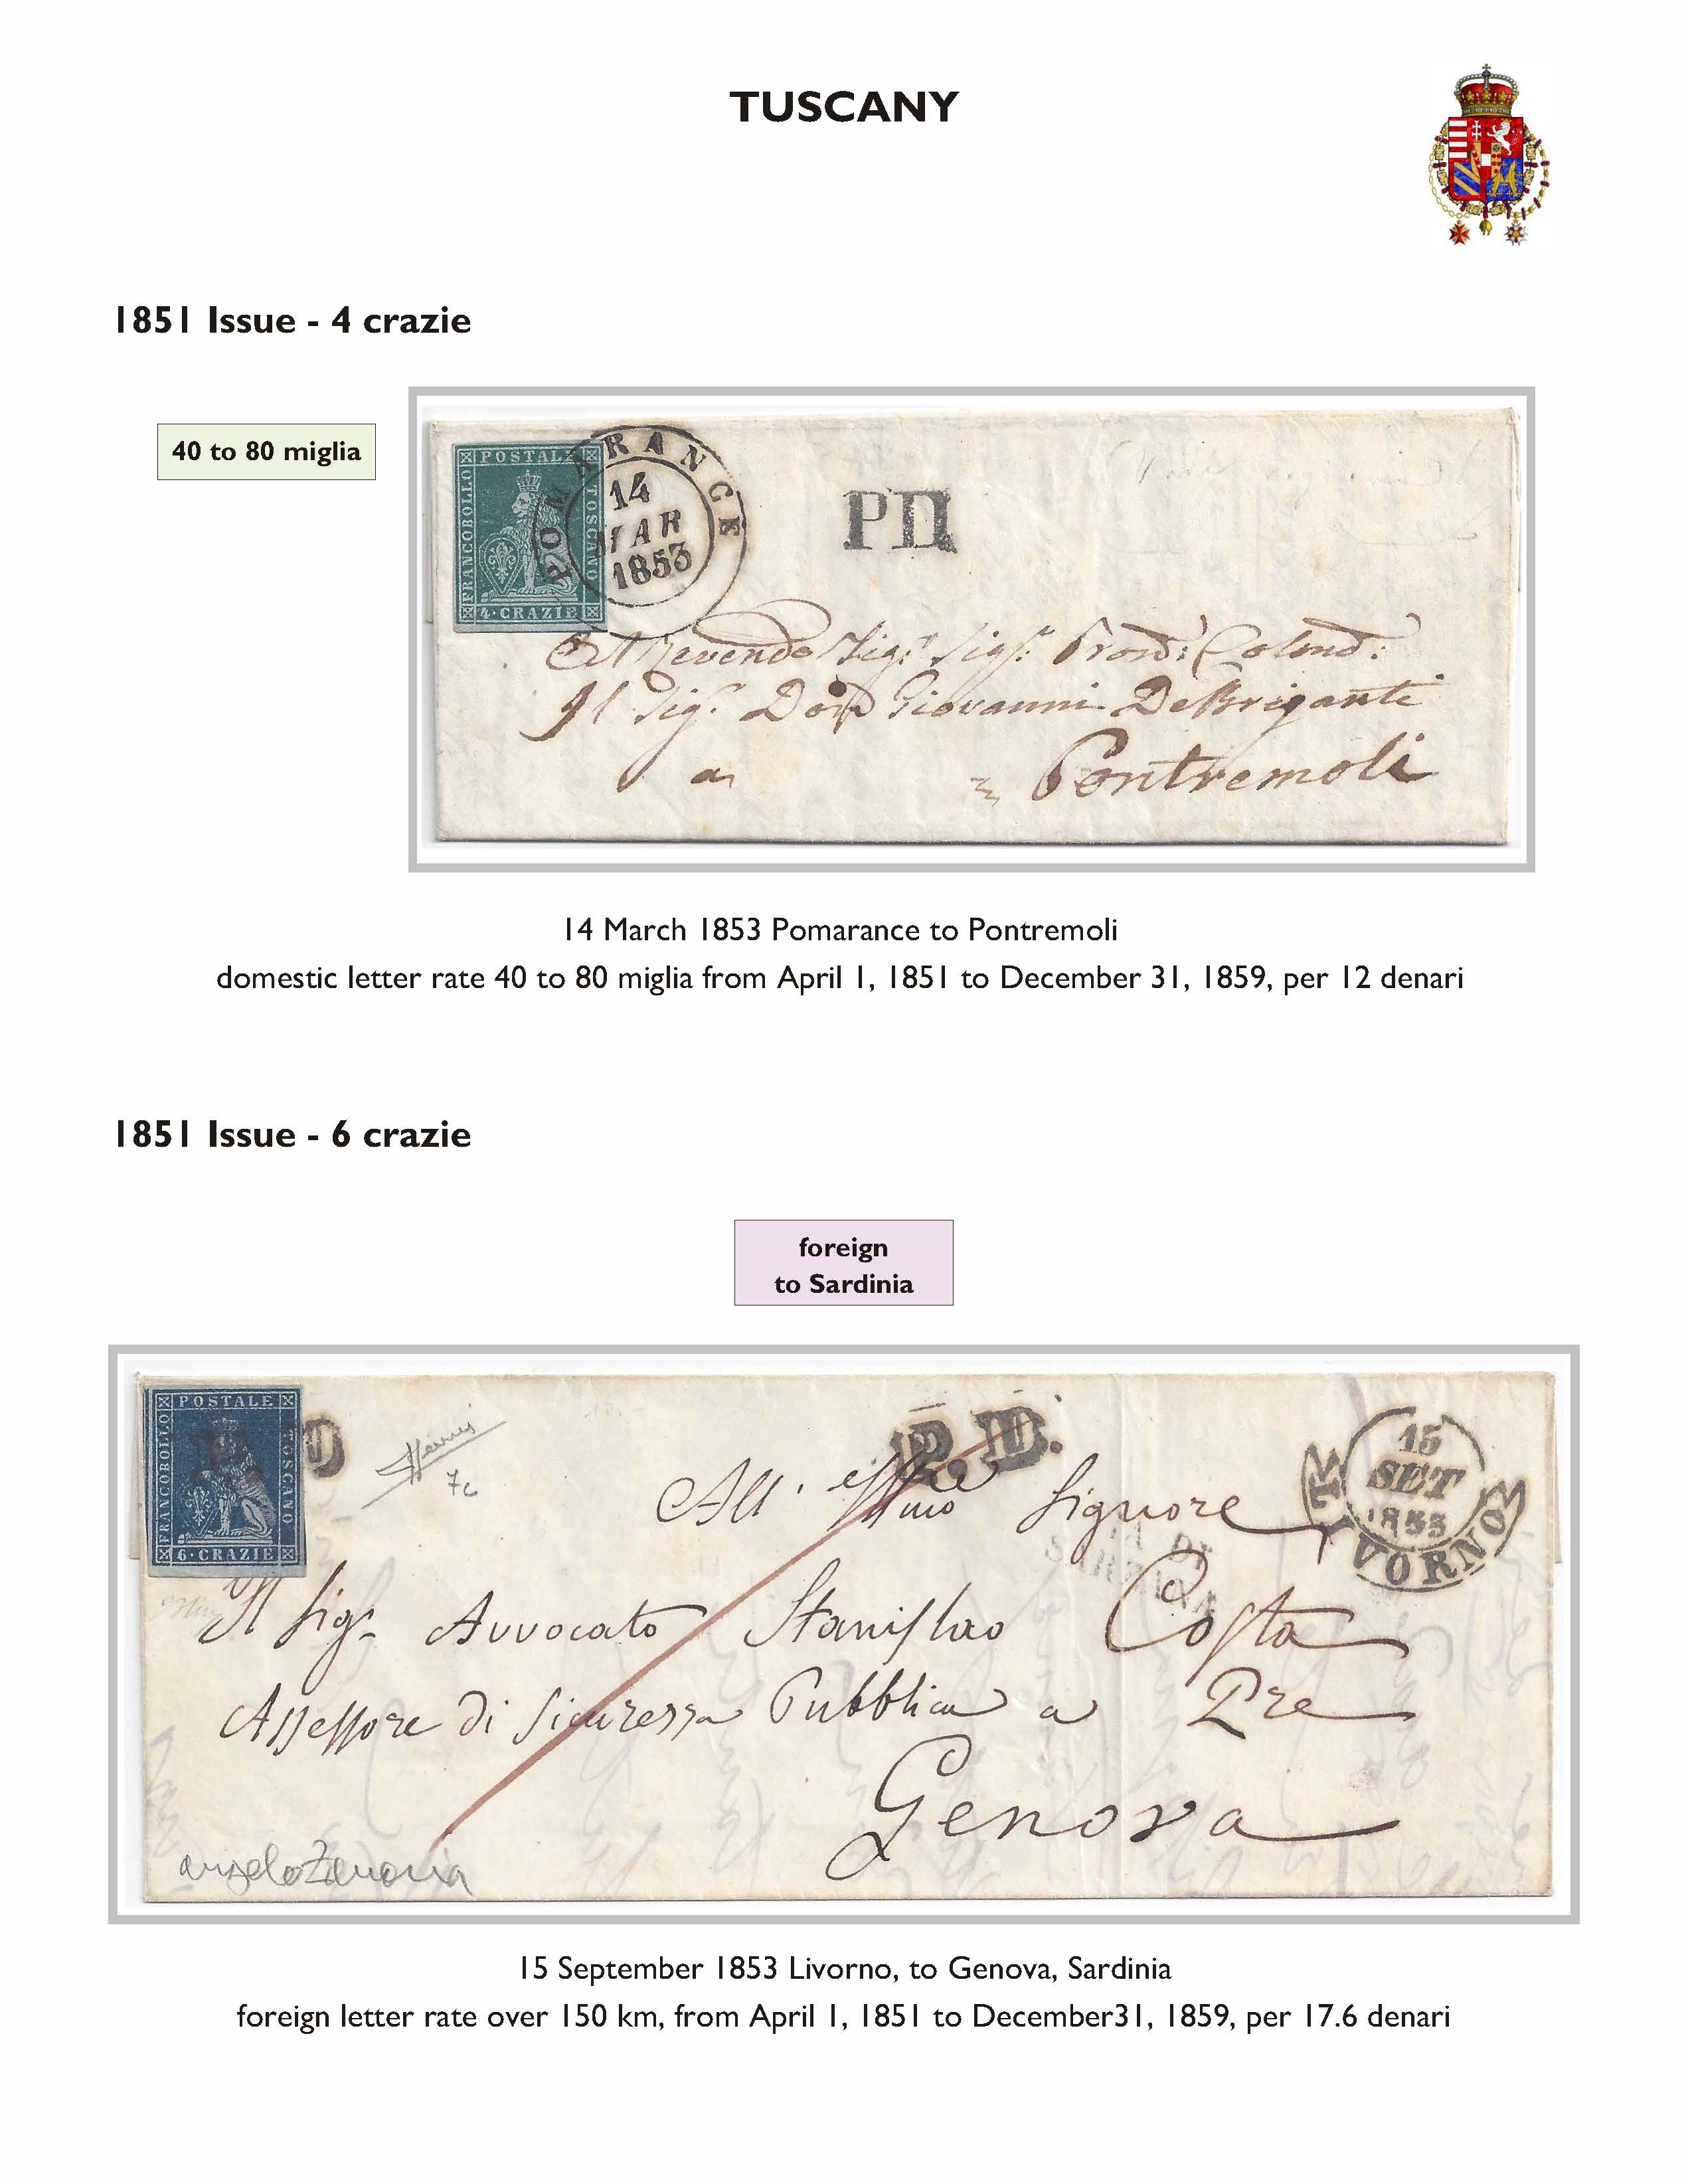 TUSCANY
1851 Issue - 4 crazie
40 to 80 miglia
POSTALE
FRANCOBOLLO
TOSCANO
4·CRAZIE
POMARANCE
14
MAR
1853
PD
Sigr
Il Sigr. Don Giovanni DeBriganti
a Pontremoli
14 March 1853 Pomarance to Pontremoli
domestic letter rate 40 to 80 miglia from April 1, 1851 to December 31, 1859, per 12 denari
1851 Issue - 6 crazie
foreign
to Sardinia
POSTALE
FRANCOBOLLO
TOSCANO
6·CRAZIE
P.D.
15
SET
1853
LIVORNO
7c
All' Signore
Il Sigr Avvocato Stanislao Costa
Assessore di Sicurezza Pubblica a Pre
Genova
15 September 1853 Livorno, to Genova, Sardinia
foreign letter rate over 150 km, from April 1, 1851 to December31, 1859, per 17.6 denari